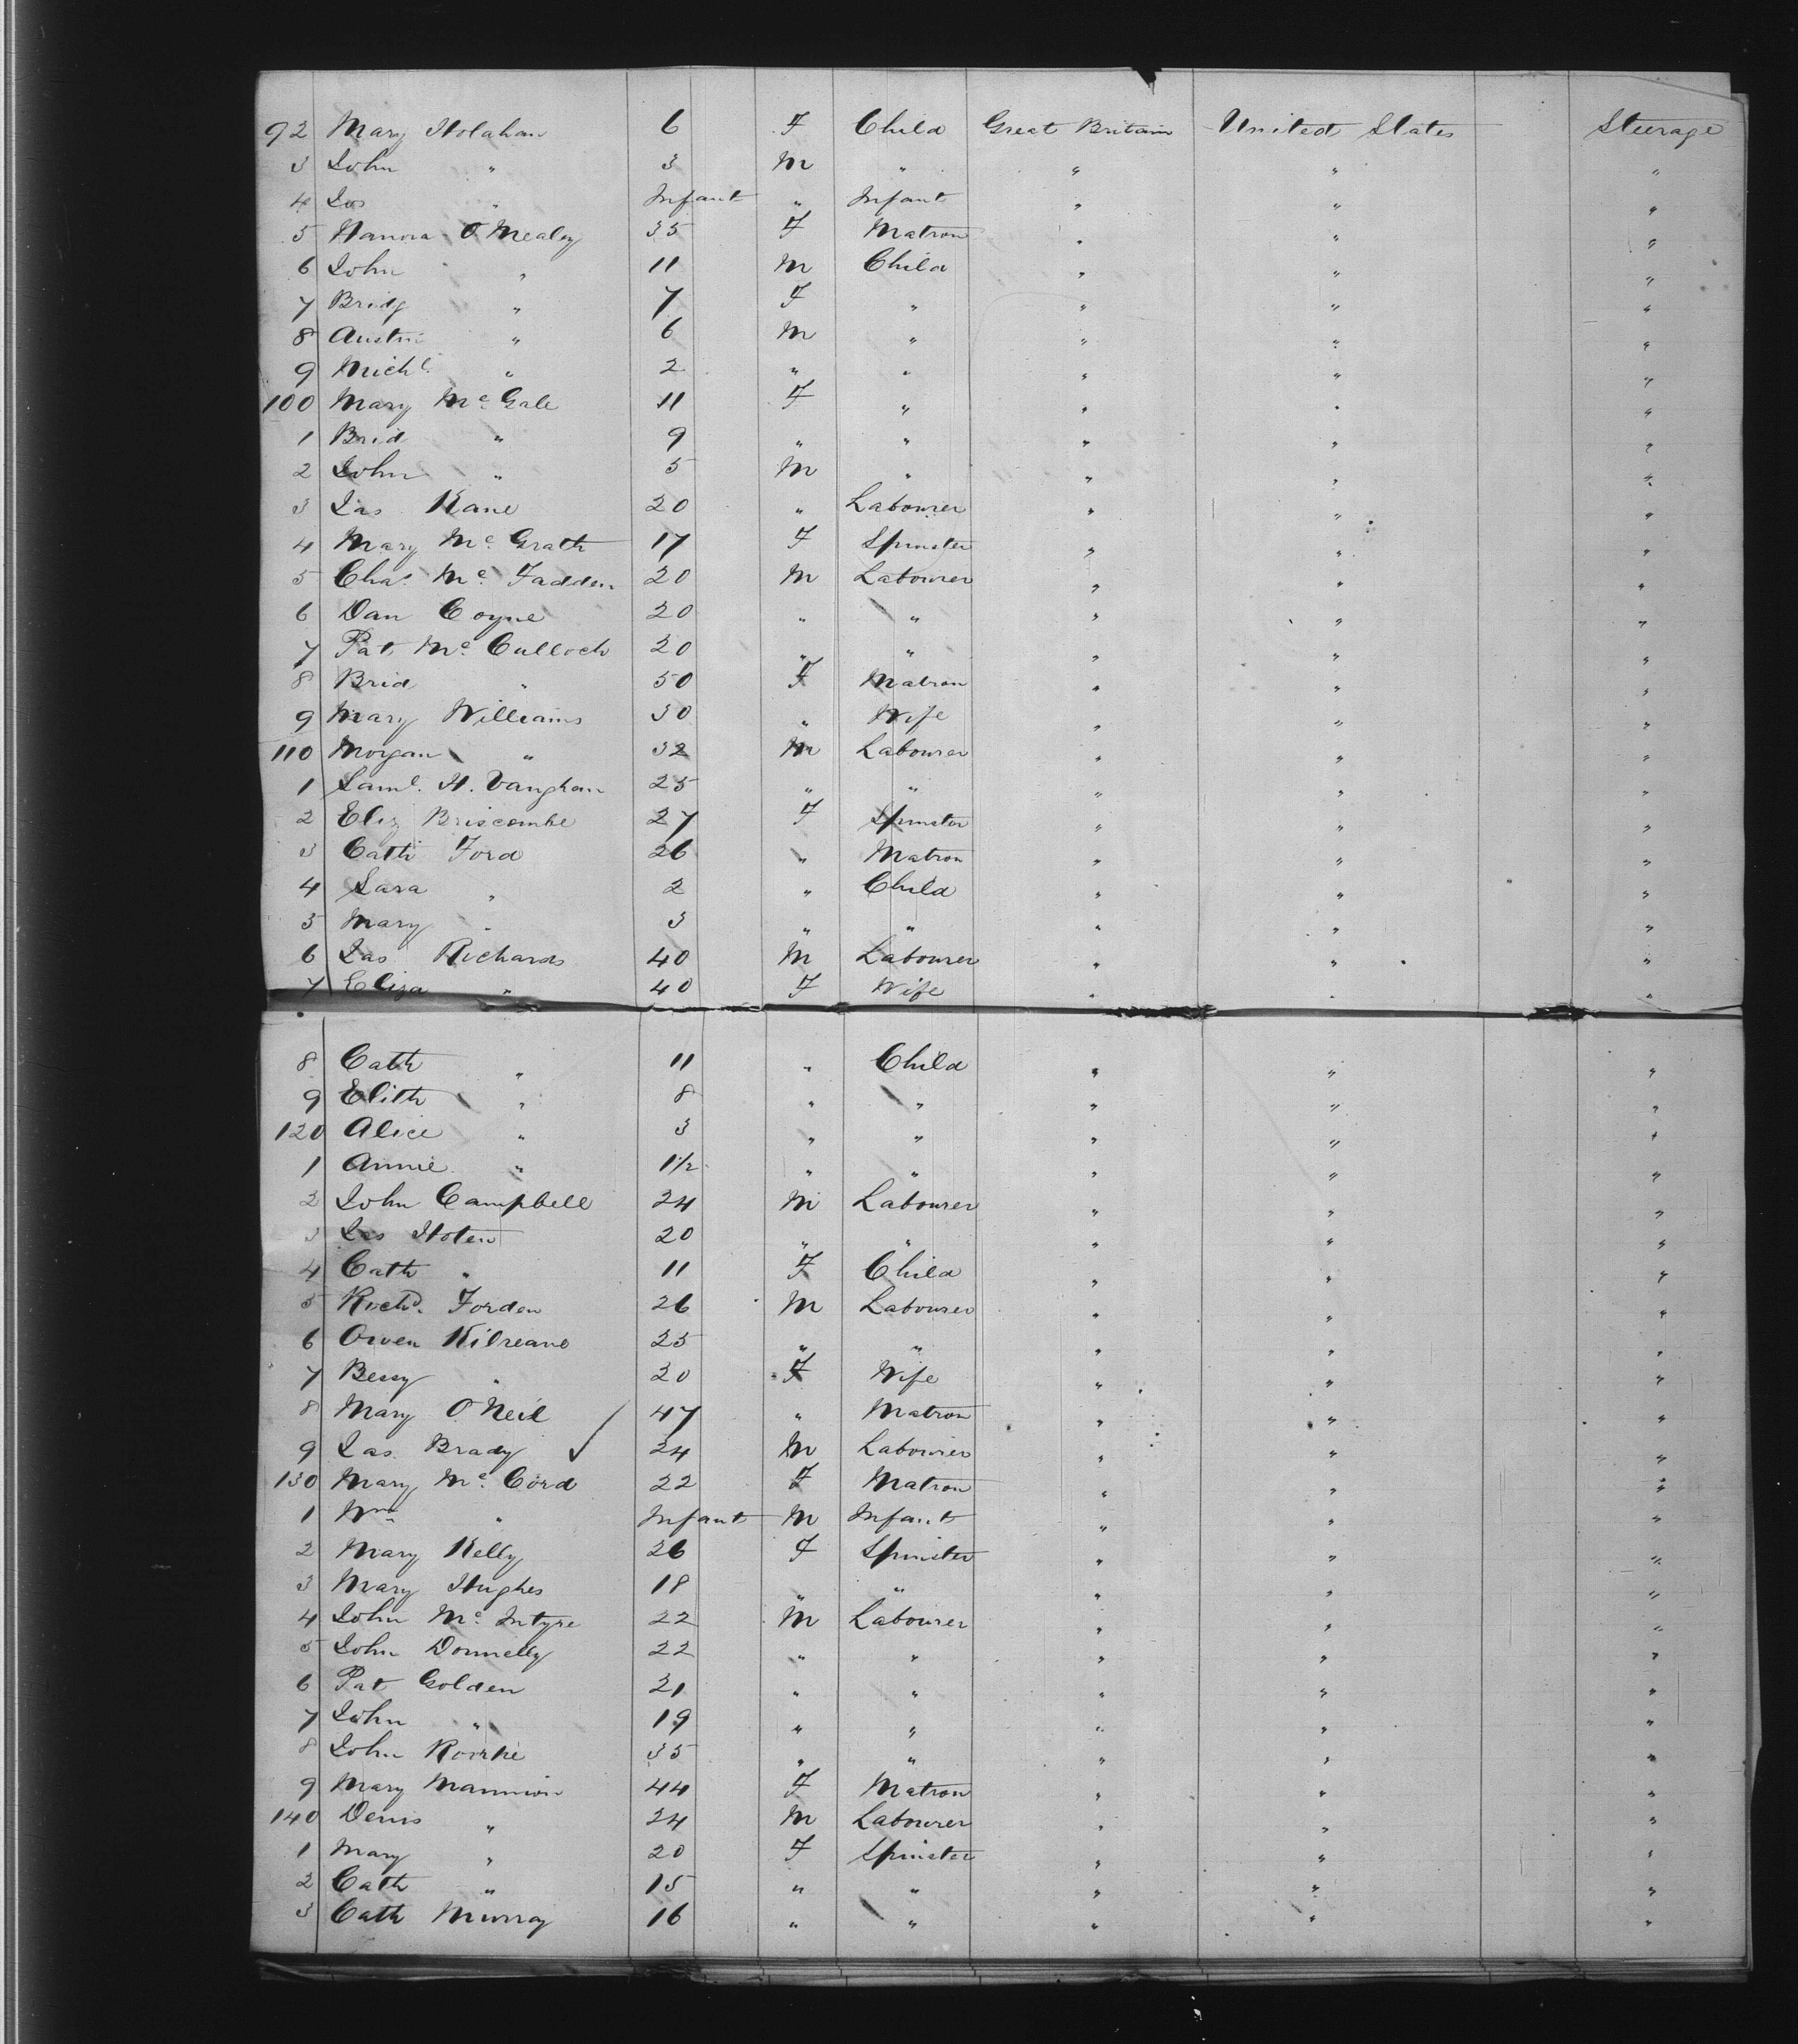 92 Mary Holahan 6 F Child Great Britain United States Steerage
3 John " 3 M " " " "
4 Jas " Infant " Infant " " "
5 Hanora O'Mealey 35 F Matron " " "
6 John " 11 M Child " " "
7 Bridg " 7 F " " " "
8 Austin " 6 M " " " "
9 Michl. " 2 " " " " "
100 Mary Mc Gale 11 F " " " "
1 Brid " 9 " " " " "
2 John " 5 M " " " "
3 Jas Kane 20 " Labourer " " "
4 Mary Mc Grath 17 F Spinster " " "
5 Chas Mc Fadden 20 M Labourer " " "
6 Dan Coyne 20 " " " " "
7 Pat Mc Culloch 20 " " " " "
8 Brid " 50 F Matron " " "
9 Mary Williams 30 " Wife " " "
110 Morgan " 32 M Labourer " " "
1 Saml. H. Vaughan 25 " " " " "
2 Eliz Briscombe 27 F Spinster " " "
3 Cath Ford 26 " Matron " " "
4 Sara " 2 " Child " " "
5 Mary " 3 " " " " "
6 Jas Richards 40 M Labourer " " "
7 Eliza " 40 F Wife " " "
8 Cath " 11 " Child " " "
9 Elith " 8 " " " " "
120 Alice " 3 " " " " "
1 Annie " 1½ " " " " "
2 John Campbell 24 M Labourer " " "
3 Jas Hoten 20 " " " " "
4 Cath " 11 F Child " " "
5 Richd. Forden 26 M Labourer " " "
6 Owen Kilreane 25 " " " " "
7 Bessy " 20 F Wife " " "
8 Mary O'Neil 47 " Matron " " "
9 Jas Brady ✓ 24 M Labourer " " "
130 Mary Mc Cord 22 F Matron " " "
1 Wm " Infant M Infant " " "
2 Mary Kelly 26 F Spinster " " "
3 Mary Hughes 18 " " " " "
4 John Mc Intyre 22 M Labourer " " "
5 John Donnelly 22 " " " " "
6 Pat Golden 21 " " " " "
7 John " 19 " " " " "
8 John Roorke 35 " " " " "
9 Mary Mannion 44 F Matron " " "
140 Denis " 24 M Labourer " " "
1 Mary " 20 F Spinster " " "
2 Cath " 15 " " " " "
3 Cath Murray 16 " " " " "